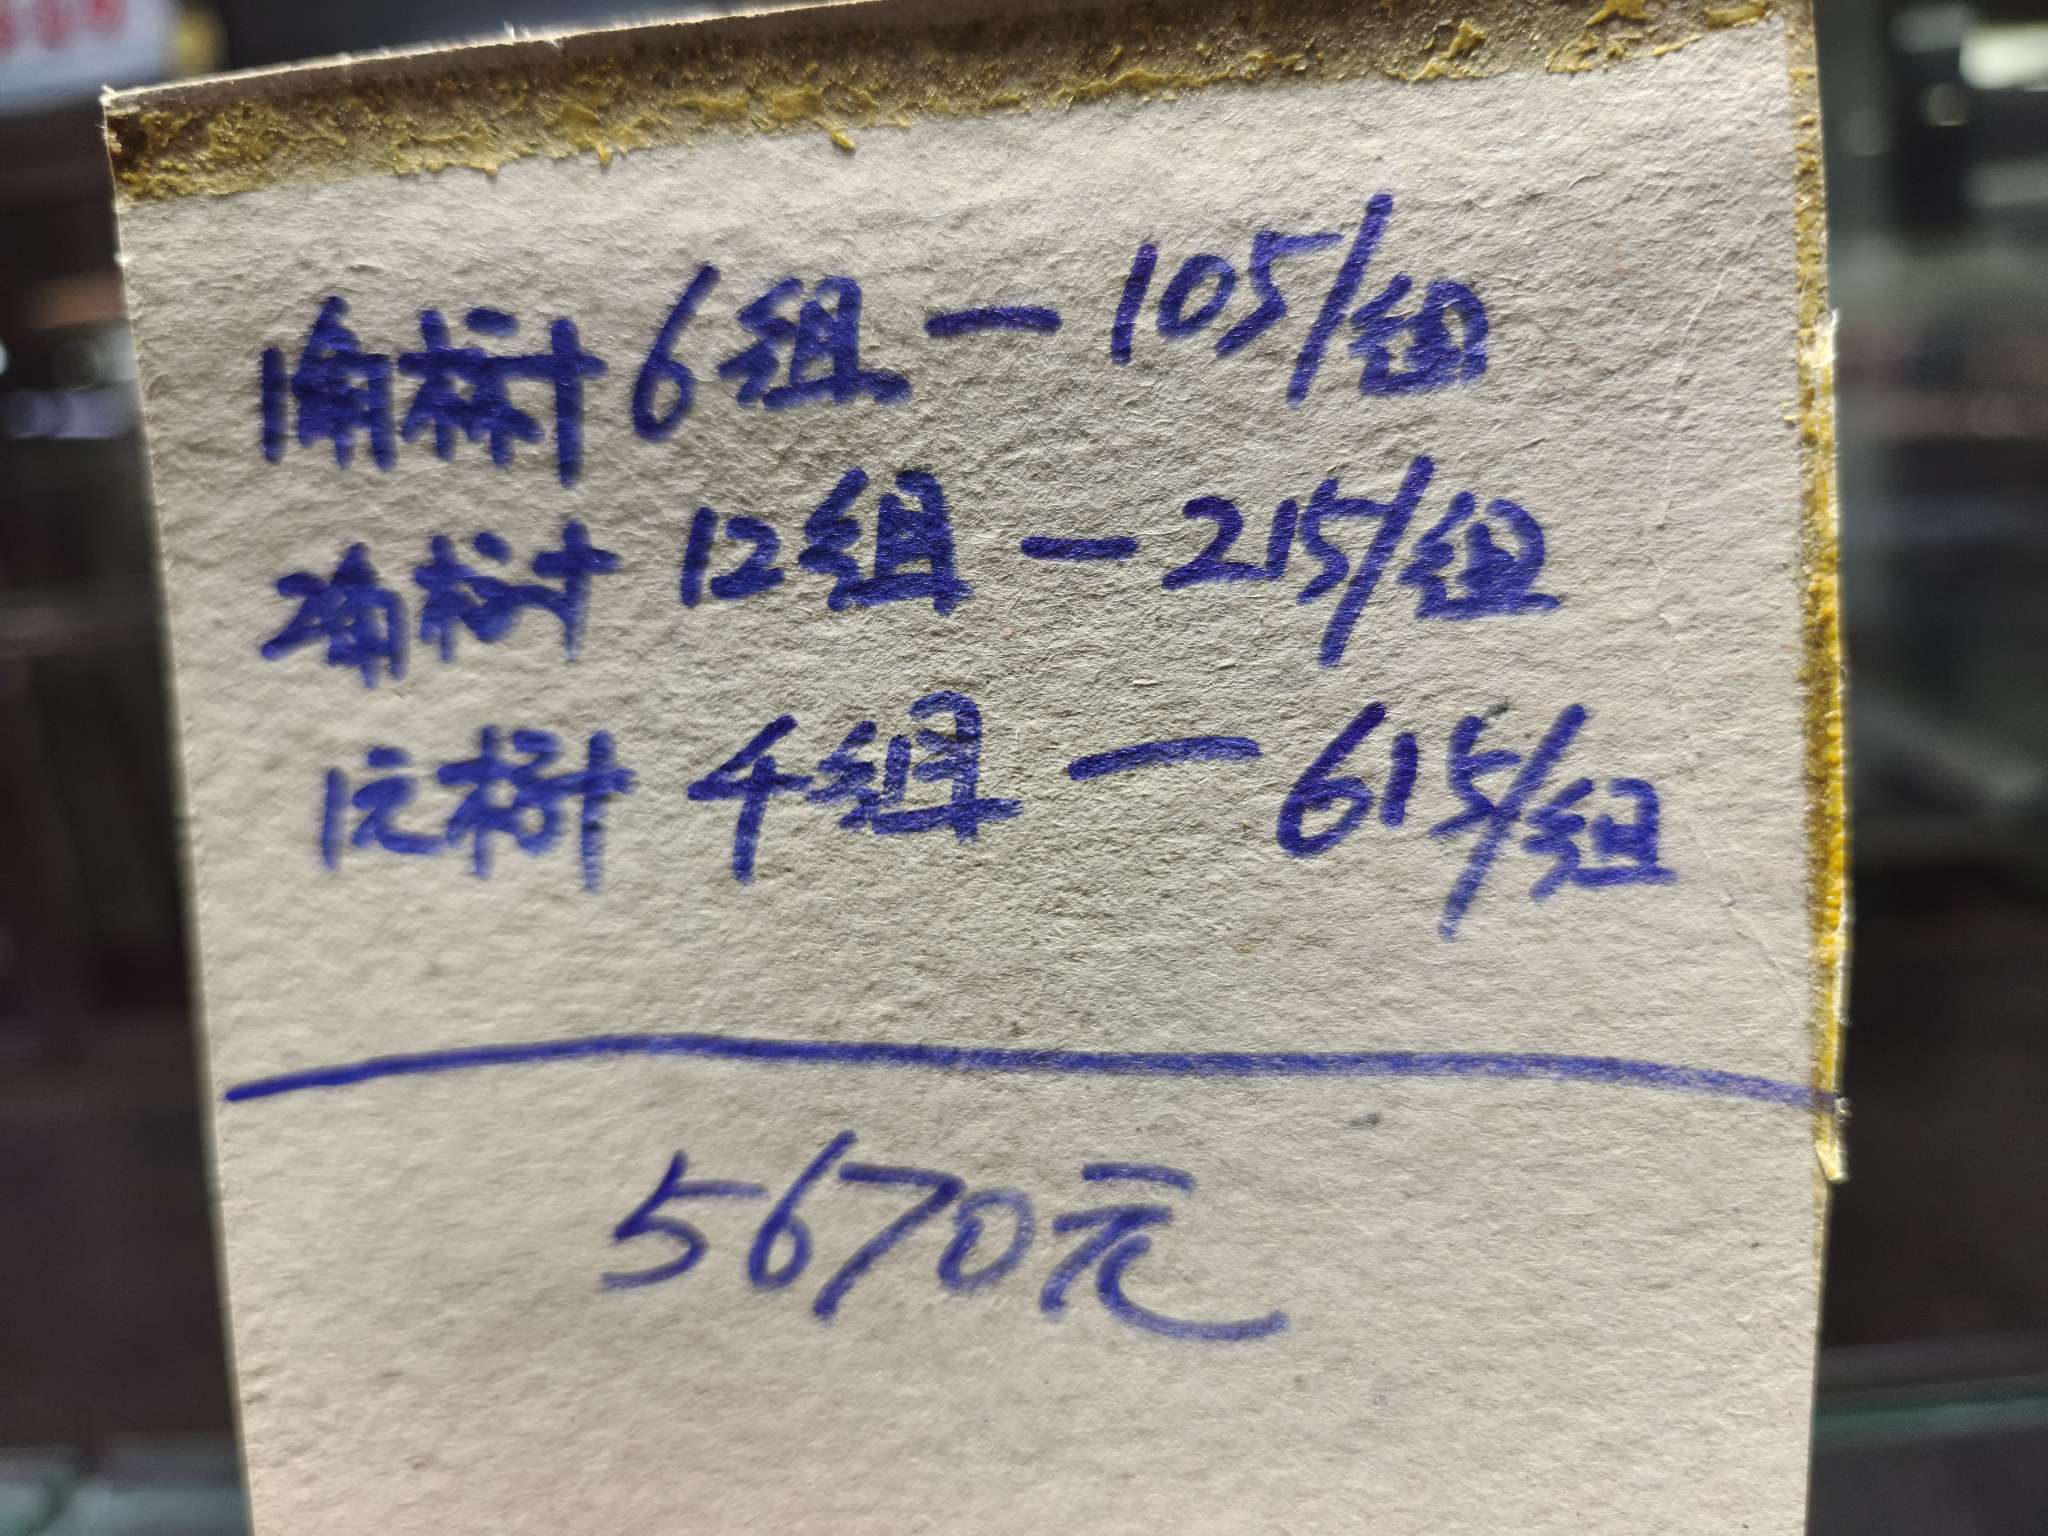 1角树 6组 — 105/组
2角树 12组 — 215/组
1元树 4组 — 615/组
5670元